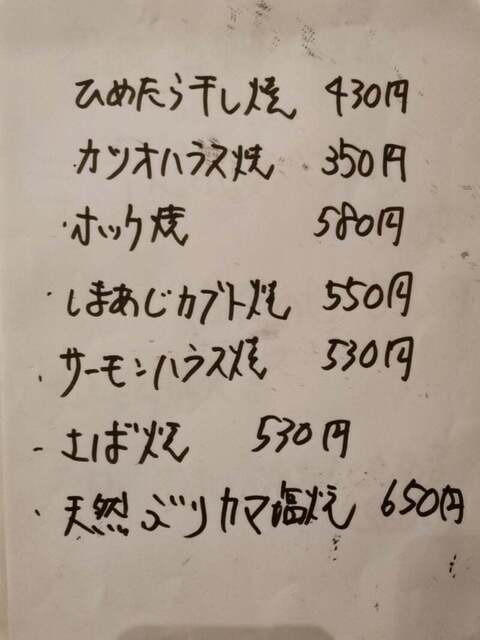 ひめたら干し焼 430円
・カツオハラス焼 350円
・ホック焼 580円
・しまあじカブト焼 550円
・サーモンハラス焼 530円
・さば焼 530円
・天然ぶりカマ塩焼 650円